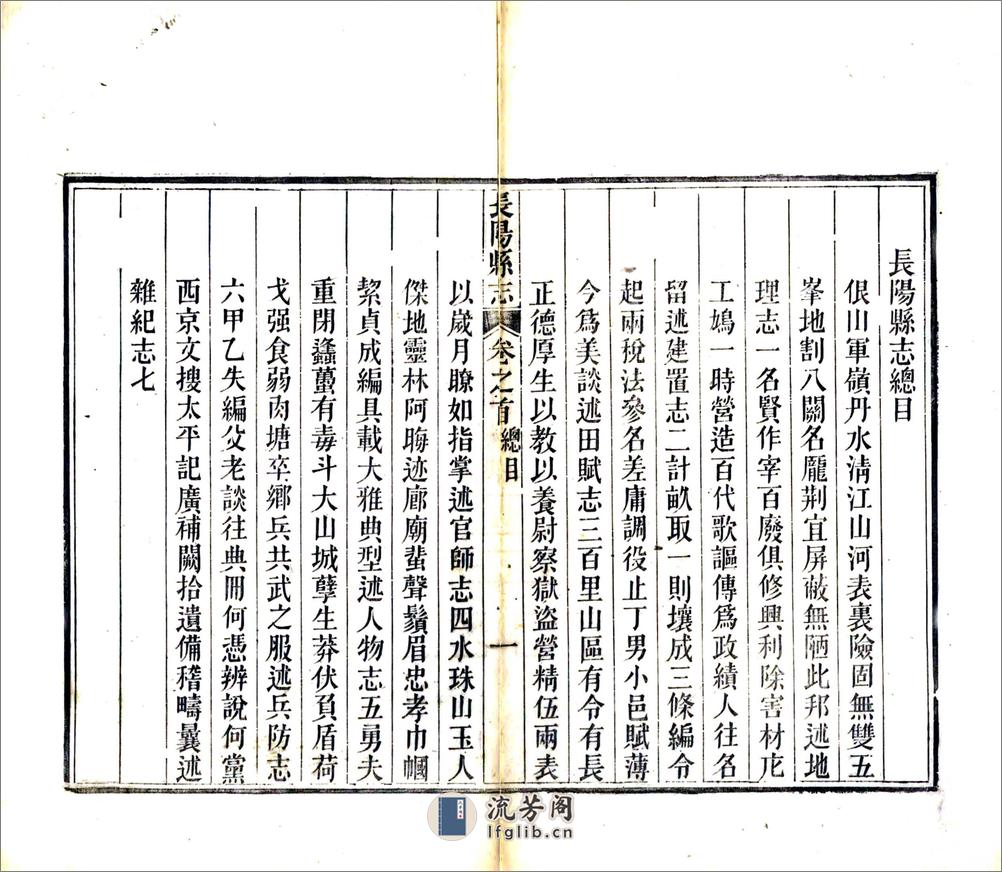 長陽縣志總目
佷山軍嶺丹水淸江山河表裏險固無雙五
峯地割八關名厖荆宜屏蔽無陋此邦述地
理志一名賢作宰百廢俱修興利除害材庀
工鳩一時營造百代歌謳傳爲政績人往名
留述建置志二計畝取一則壤成三條編令
起兩稅法參名差庸調役止丁男小邑賦薄
今爲美談述田賦志三百里山區有令有長
正德厚生以教以養尉察獄盜營精伍兩表
長陽縣志 卷之首 總目 一
以歲月瞭如指掌述官師志四水珠山玉人
傑地靈林阿晦迹廊廟蜚聲鬚眉忠孝巾幗
絜貞成編具載大雅典型述人物志五勇夫
重閉蠭蠆有毒斗大山城孽生莽伏負盾荷
戈强食弱肉塘卒鄉兵共武之服述兵防志
六甲乙失編父老談往典冊何憑辨說何黨
西京文搜太平記廣補闕拾遺備稽疇曩述
雜紀志七
流芳阁
lfglib.cn